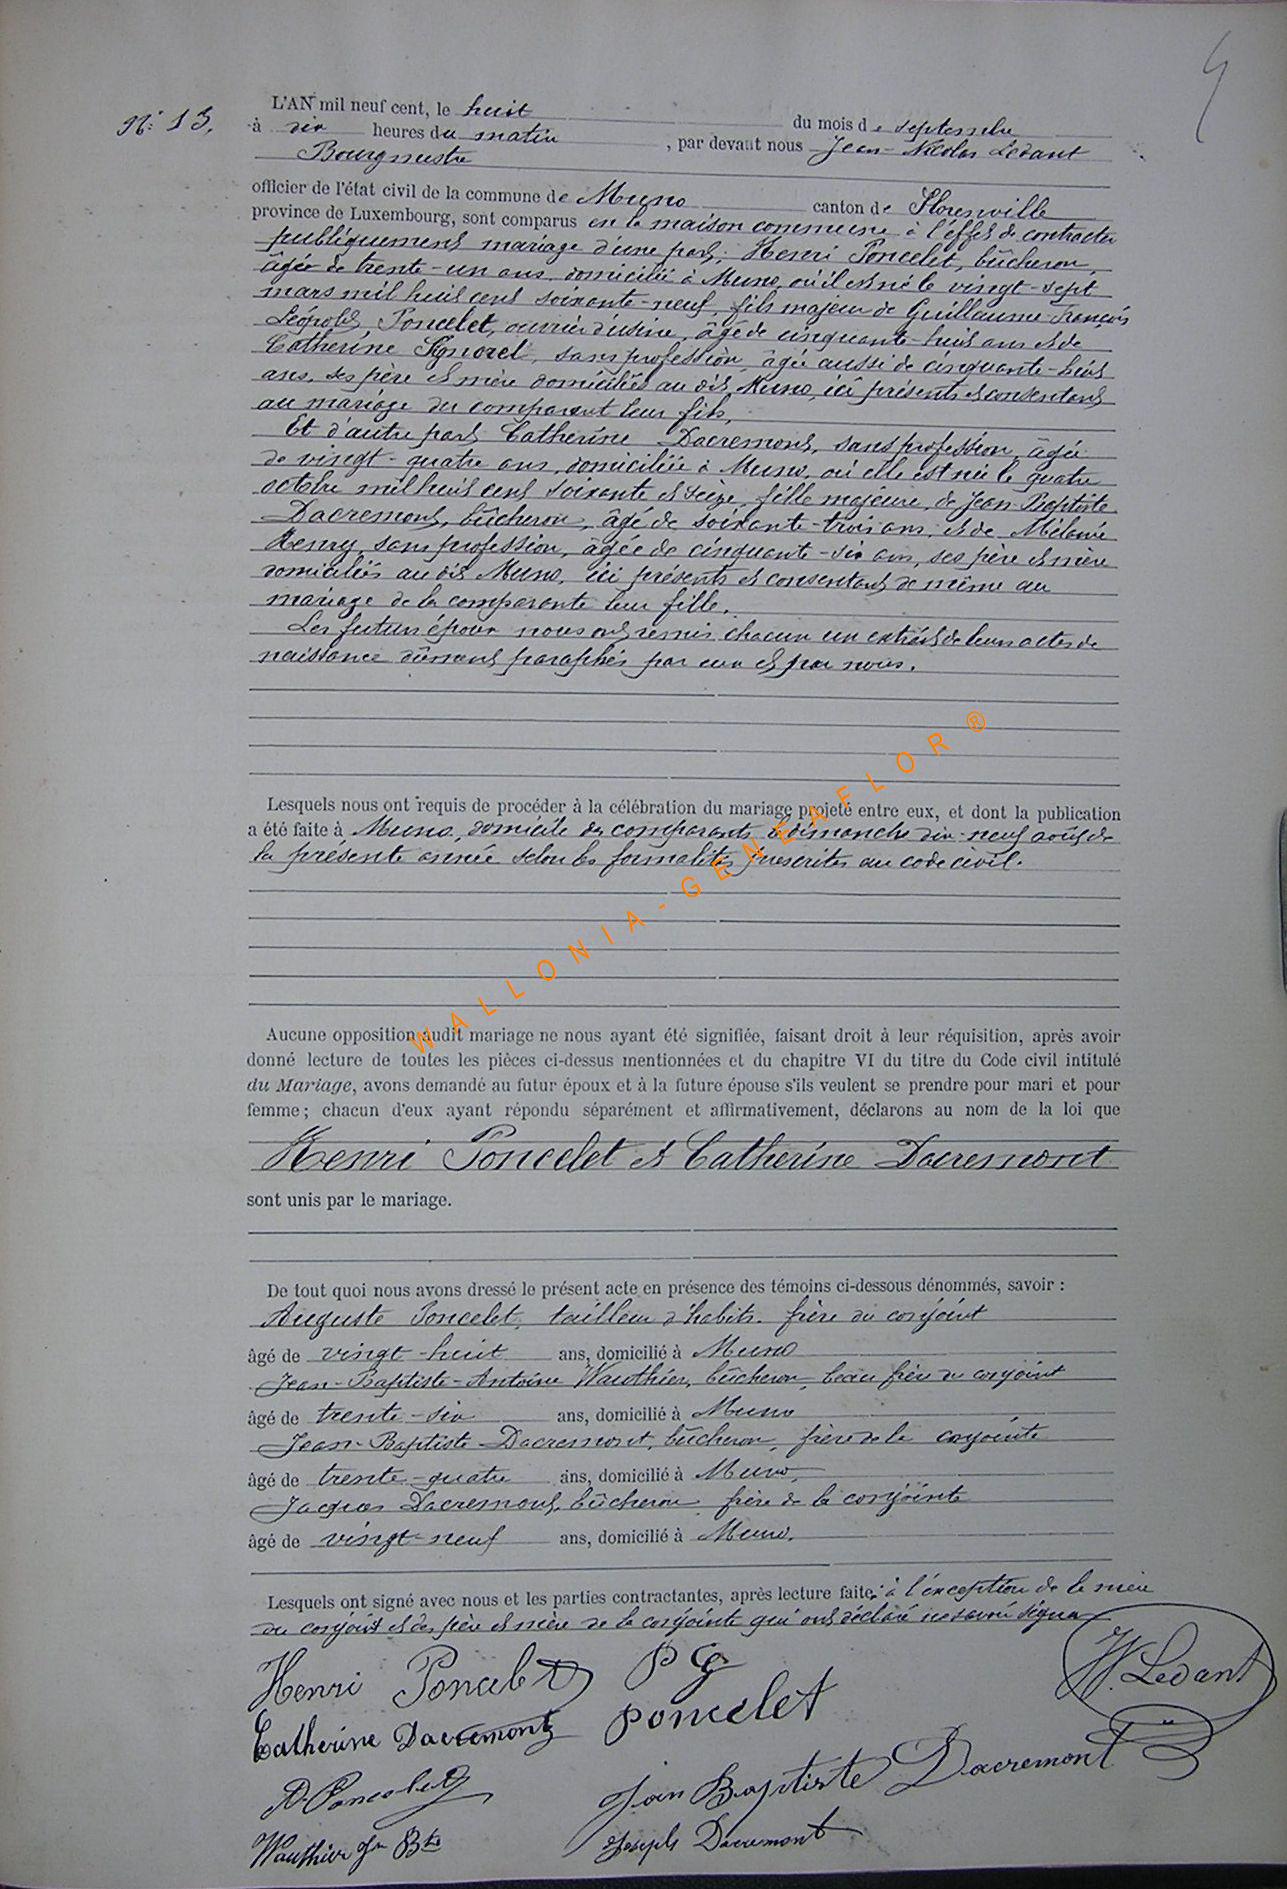 4
N° 13.
L'AN mil neuf cent, le huit du mois de septembre
à dix heures du matin, par devant nous Jean-Nicolas Ledant
Bourgmestre
officier de l'état civil de la commune de Muno canton de Florenville
province de Luxembourg, sont comparus en la maison commune à l'effet de contracter
publiquement mariage d'une part, Henri Poncelet, bûcheron,
âgé de trente-un ans, domicilié à Muno, où il est né le vingt-sept
mars mil huit cent soixante-neuf, fils majeur de Guillaume-François
Léopold Poncelet, ouvrier d'usine, âgé de cinquante-huit ans et de
Catherine, sans profession, âgée aussi de cinquante-huit
ans, ses père et mère domiciliés au dit Muno, ici présents et consentant
au mariage du comparant leur fils,
Et d'autre part Catherine Dacremont, sans profession, âgée
de vingt-quatre ans, domiciliée à Muno, où elle est née le quatre
octobre mil huit cent soixante et seize, fille majeure de Jean-Baptiste
Dacremont, bûcheron, âgé de soixante-trois ans, et de Mélanie
Henry, sans profession, âgée de cinquante-six ans, ses père et mère
domiciliés au dit Muno, ici présents et consentant de même au
mariage de la comparante leur fille.
Les futurs époux nous ont remis chacun un extrait de leurs actes de
naissance dûment paraphés par eux et par nous.
Lesquels nous ont requis de procéder à la célébration du mariage projeté entre eux, et dont la publication
a été faite à Muno, domicile des comparants le dimanche dix-neuf août de
la présente année selon les formalités prescrites au code civil.
WALLONIA-GENEAFLOR ®
Aucune opposition audit mariage ne nous ayant été signifiée, faisant droit à leur réquisition, après avoir
donné lecture de toutes les pièces ci-dessus mentionnées et du chapitre VI du titre du Code civil intitulé
du Mariage, avons demandé au futur époux et à la future épouse s'ils veulent se prendre pour mari et pour
femme; chacun d'eux ayant répondu séparément et affirmativement, déclarons au nom de la loi que
Henri Poncelet et Catherine Dacremont
sont unis par le mariage.
De tout quoi nous avons dressé le présent acte en présence des témoins ci-dessous dénommés, savoir :
Auguste Poncelet, tailleur d'habits, frère du conjoint
âgé de vingt-huit ans, domicilié à Muno
Jean-Baptiste-Antoine Wauthier, bûcheron, beau frère du conjoint
âgé de trente-six ans, domicilié à Muno
Jean-Baptiste Dacremont, bûcheron, frère de la conjointe
âgé de trente-quatre ans, domicilié à Muno,
Jacques Dacremont, bûcheron frère de la conjointe
âgé de vingt-neuf ans, domicilié à Muno.
Lesquels ont signé avec nous et les parties contractantes, après lecture faite, à l'exception de la mère
du conjoint et des père et mère de la conjointe qui ont déclaré ne savoir signer
Henri Poncelet P G
N. Ledant
Catherine Dacremont Poncelet
A. Poncelet Jean Baptiste Dacremont
Wauthier Jn Bte Joseph Dacremont